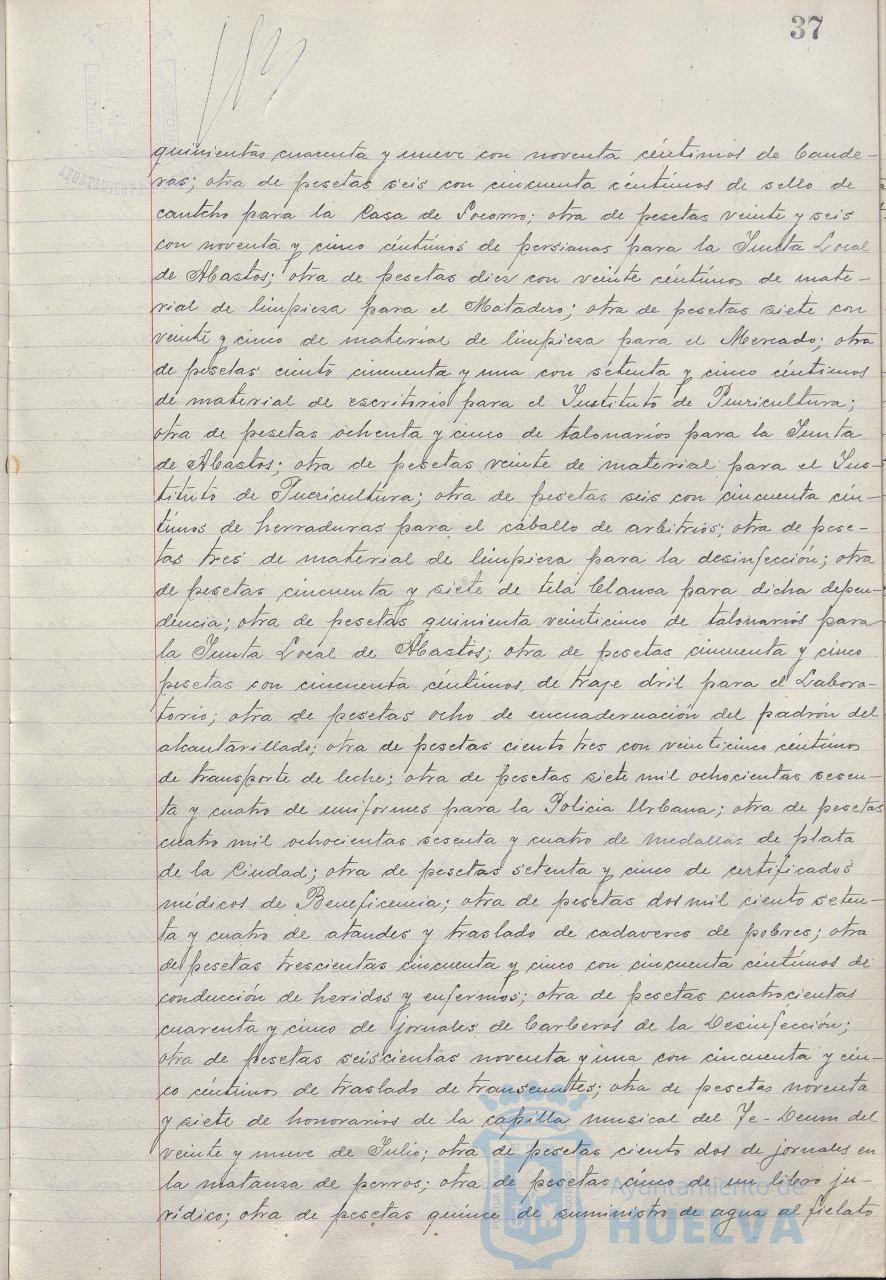 37
quinientas cuarenta y nueve con noventa céntimos de bande-
ras; otra de pesetas seis con cincuenta céntimos de sello de
cautcho para la Casa de Socorro; otra de pesetas veinte y seis
con noventa y cinco céntimos de persianas para la Junta Local
de Abastos; otra de pesetas diez con veinte céntimos de mate-
rial de limpieza para el Matadero; otra de pesetas siete con
veinte y cinco de material de limpieza para el Mercado; otra
de pesetas ciento cincuenta y una con setenta y cinco céntimos
de material de escritorio para el Instituto de Puericultura;
otra de pesetas ochenta y cinco de talonarios para la Junta
de Abastos; otra de pesetas veinte de material para el Ins-
tituto de Puericultura; otra de pesetas seis con cincuenta cén-
timos de herraduras para el caballo de arbitrios; otra de pese-
tas tres de material de limpieza para la desinfección; otra
de pesetas cincuenta y siete de tela blanca para dicha depen-
dencia; otra de pesetas quinienta veinticinco de talonarios para
la Junta Local de Abastos; otra de pesetas cincuenta y cinco
pesetas con cincuenta céntimos, de traje dril para el Labora-
torio; otra de pesetas ocho de encuadernación del padrón del
alcantarillado; otra de pesetas ciento tres con veinticinco céntimos
de transporte de leche; otra de pesetas siete mil ochocientas sesen-
ta y cuatro de uniformes para la Policia Urbana; otra de pesetas
cuatro mil ochocientas sesenta y cuatro de medallas de plata
de la Ciudad; otra de pesetas setenta y cinco de certificados
médicos de Beneficencia; otra de pesetas dos mil ciento seten-
ta y cuatro de ataudes y traslado de cadaveres de pobres; otra
de pesetas trescientas cincuenta y cinco con cincuenta céntimos de
conducción de heridos y enfermos; otra de pesetas cuatrocientas
cuarenta y cinco de jornales de barberos de la Desinfección;
otra de pesetas seiscientas noventa y una con cincuenta y cin-
co céntimos de traslado de transeuntes; otra de pesetas noventa
y siete de honorarios de la capilla musical del Te-Deum del
veinte y nueve de Julio; otra de pesetas ciento dos de jornales en
la matanza de perros; otra de pesetas cinco de un libro ju-
rídico; otra de pesetas quince de suministro de agua al fielato
Ayuntamiento de
HUELVA